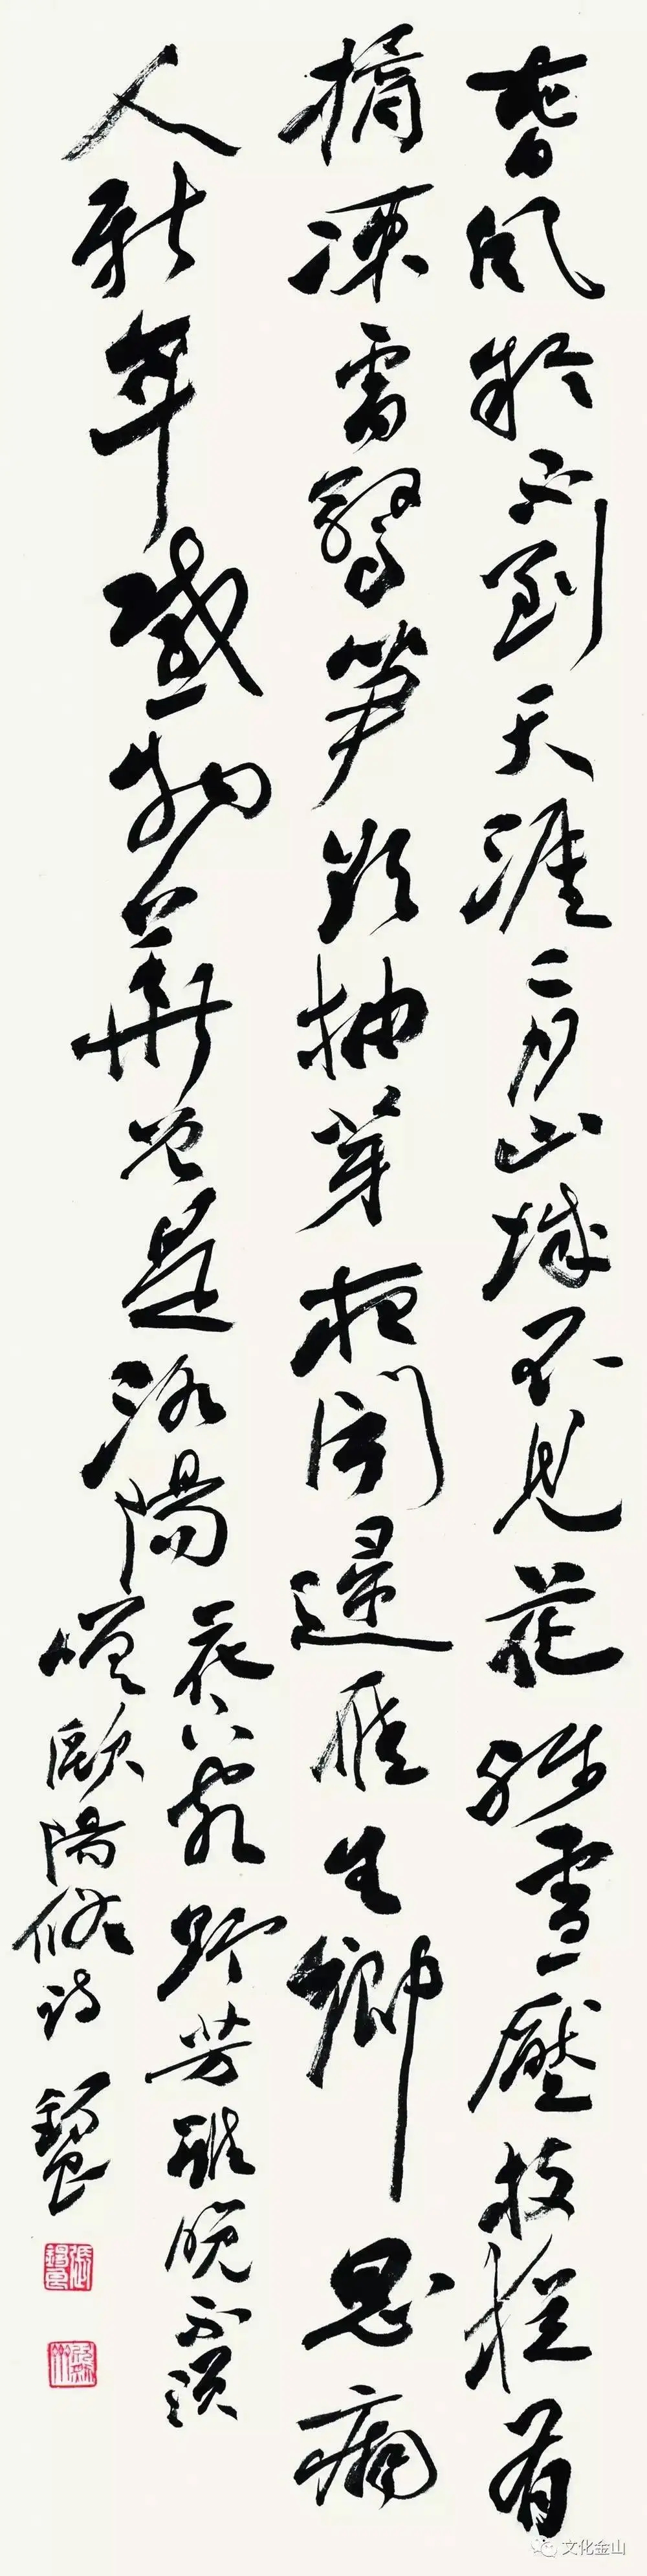 春風疑不到天涯二月山城不見花殘雪壓枝猶有
橘凍雷驚筍欲抽芽夜聞歸雁生鄉思病
入新年感物華曾是洛陽
花下客野芳雖晚不須
嗟歐陽修詩
文化金山